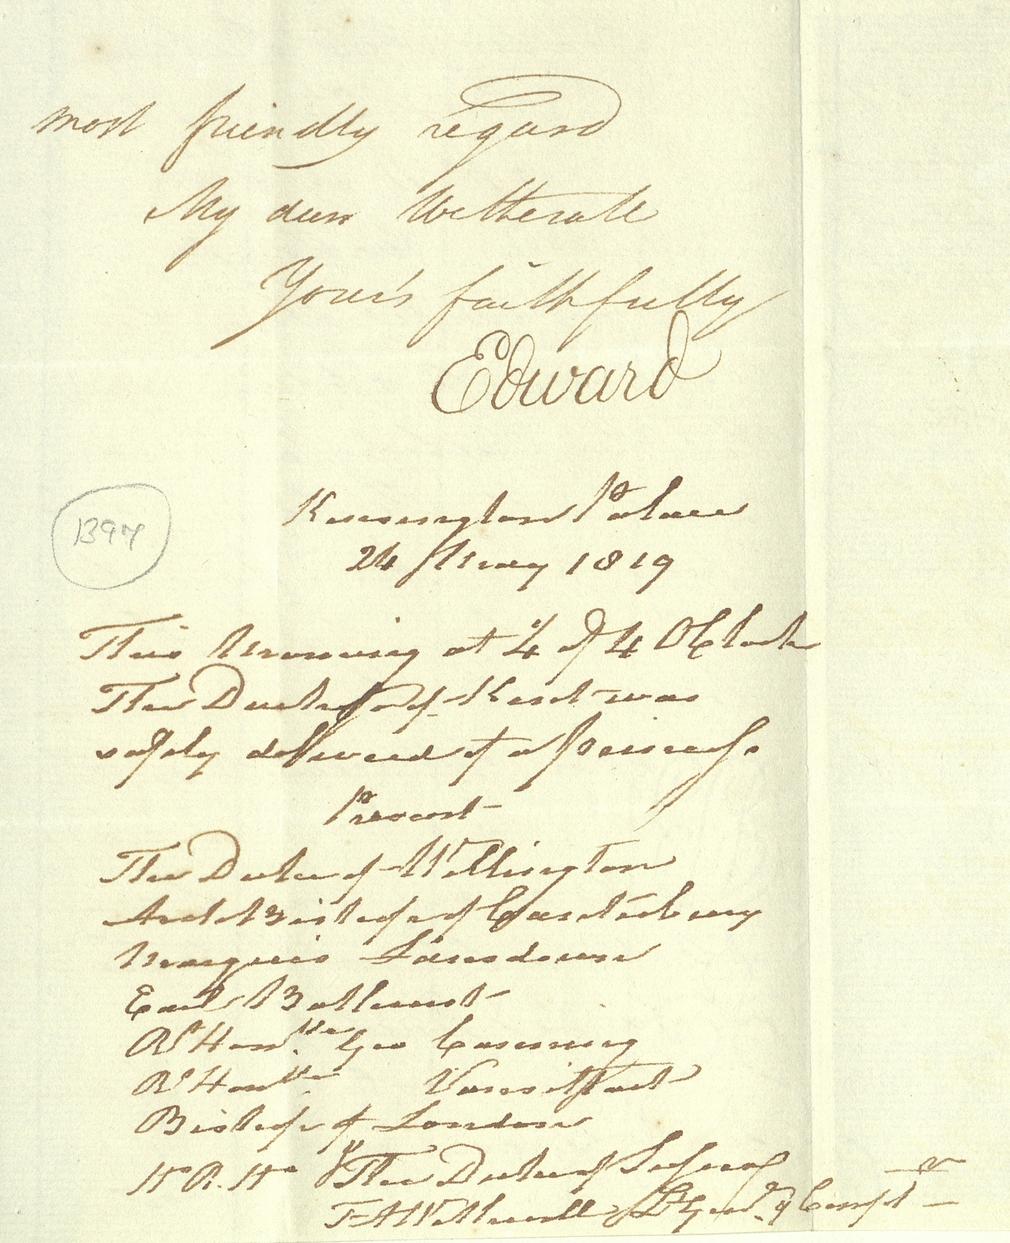 most friendly regard
My dear Wetherall
Your's faithfully
Edward
1397
Kensington Palace
24 May 1819
This Morning at ¼ of 4 OClock
The Dutchess of Kent was
safely delivered of a Princess.
Present
The Duke of Wellington
Arch Bishop of Canterbury
Marquis Lansdown
Earl Bathurst
Rt Honble Geo Canning
Rt Honble Vansittart
Bishop of London
H R. Hs The Duke of Sussex
F A Wetherall Lt Genl & Compt